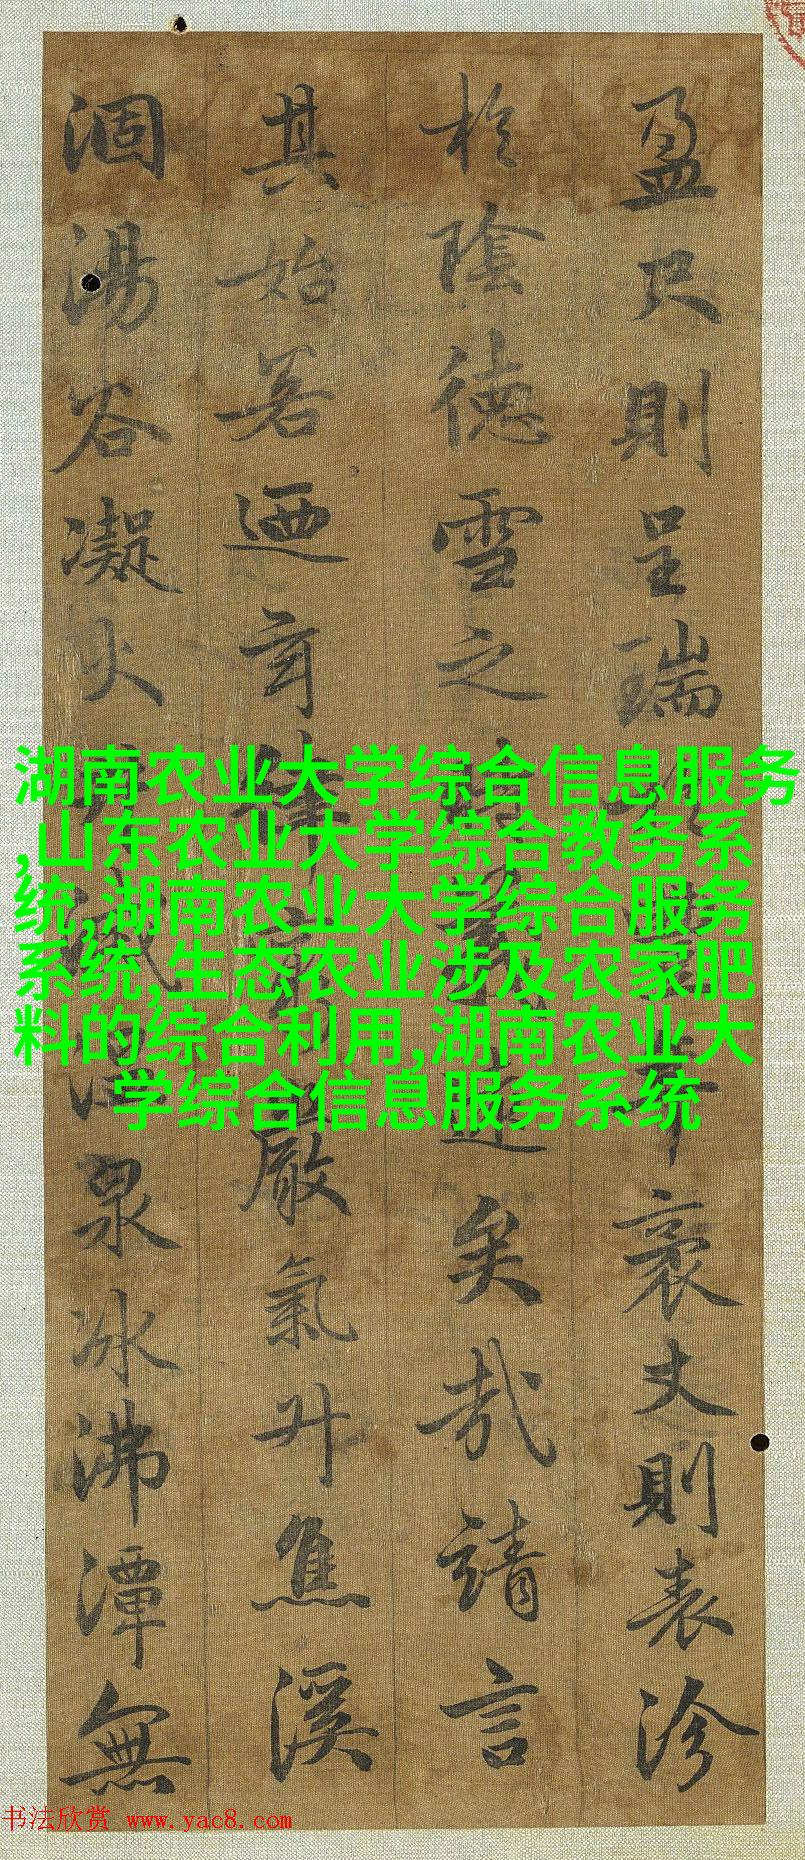 盈尺則呈瑞袤丈則表沴
於陰德雪之矣哉請言
其始若迺玄嚴氣升焦溪
涸湯谷凝火泉冰沸潭無
湖南农业大学综合信息服务
,山东农业大学综合教务系
统,湖南农业大学综合服务
系统,生态农业涉及农家肥
料的综合利用,湖南农业大
学综合信息服务系统
书法欣赏 www.yac8.com